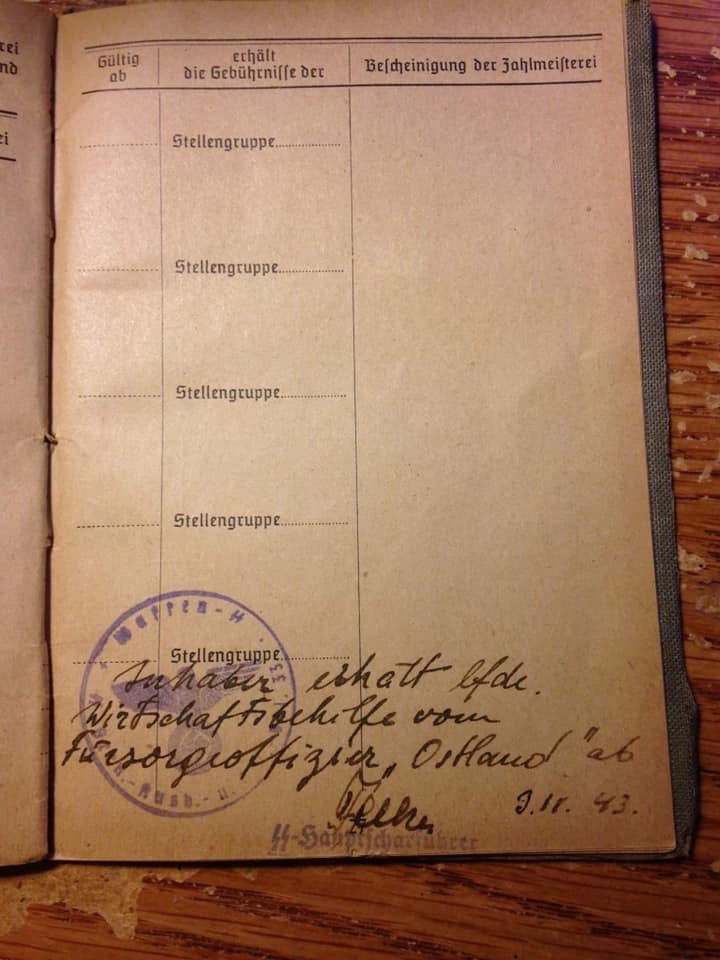 rei
nd
ei
Gültig ab
erhält die Gebührnisse der
Bescheinigung der Zahlmeisterei
Stellengruppe
Stellengruppe
Stellengruppe
Stellengruppe
Stellengruppe
Waffen-SS
Ausb.- u.
Inhaber erhält lfde.
Wirtschaftsbeihilfe vom
Fürsorgeoffizier „Ostland" ab
43.
SS-Hauptscharführer